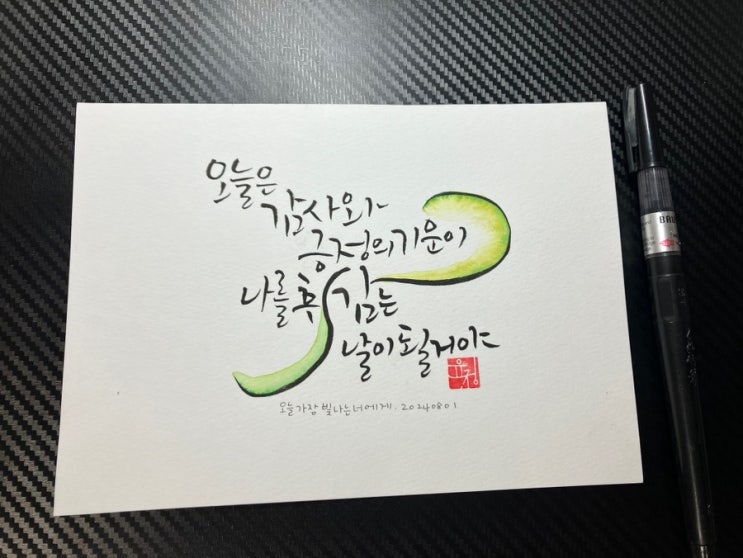 오늘은
감사와
긍정의 기운이
나를 휘감는
날이 될거야
오늘 가장 빛나는 너에게. 20240801